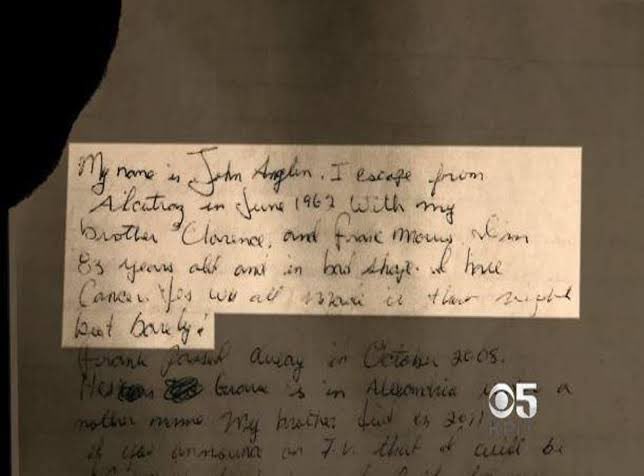 My name is John Anglin. I escape from
Alcatraz in June 1962 With my
brother Clarence, and Frank Morris. I'm
83 years old and in bad shape. I have
Cancer. Yes we all made it that night
but barely!
Frank passed away in October 2008.
His grave is in Alexandria under a
nother name. My brother died in 2011
if you announce on T.V. that I will be
5